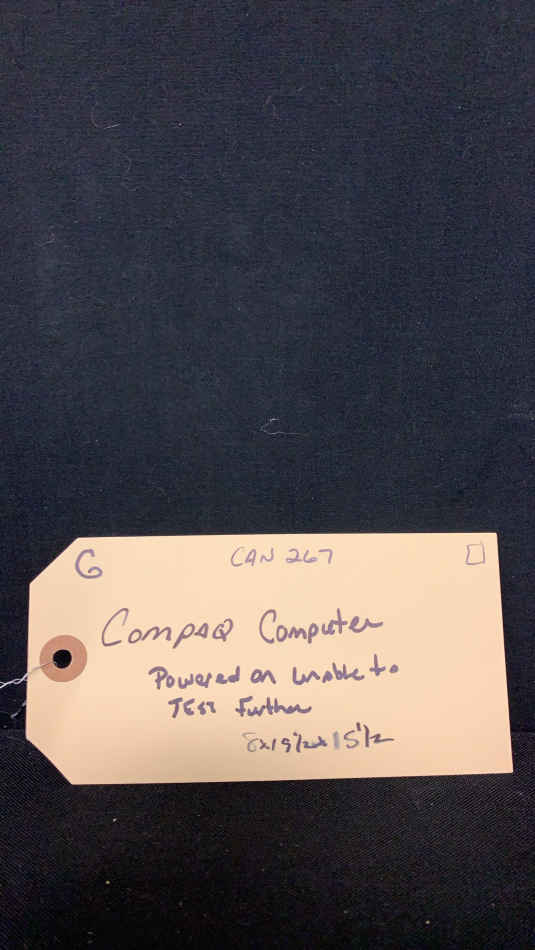 G CAN 267
Compaq Computer
Powered on Unable to
TEST Further
8x19½x15½